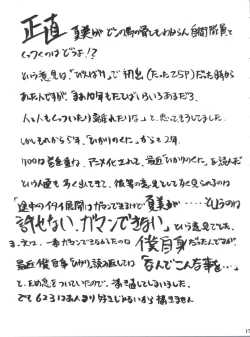 正直 夏美がどこの馬の骨ともわからん自衛隊員と
くっつくのはどうよ!?
という意見は、「ひかりばな」で初出(たった2SP)だった時から
あったんですが、まぁ10年もたてばいろいろあるだろ。
人と人もくっついたり離れたりな、と思ってそうしてました。
しかしそれから5年。「ひかりのくに」からも2年。
1700は巻を重ね、アニメ化されて、最近「ひかりのくに」を読んだ
という人達も多く出てきて、彼等の意見として多く見られるのは
「途中の 展開はガマンできるけど夏美が‥‥というのは
許せない、ガマンできない」という意見でした。
ま、実は、一番ガマンできなかったのは僕自身だったんですが。
最近僕自身もひかり読み返しては「なんてこんな事を…」
と、ため息をついていたので、描き直してしまいました。
でも623はあんまり好きじゃないから描きません
17